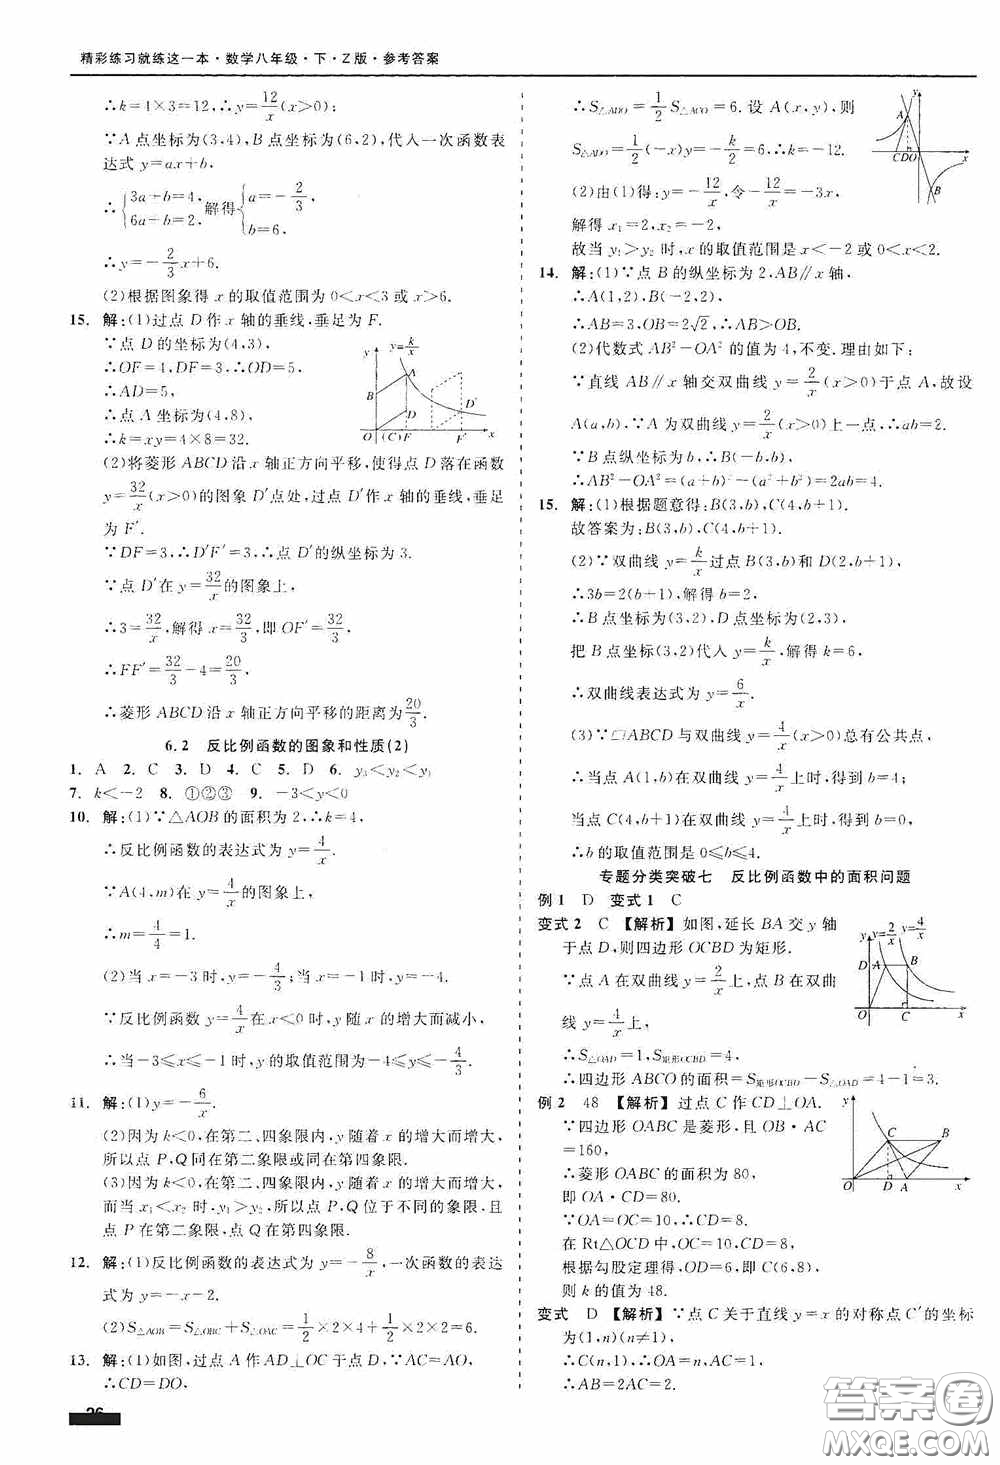 精彩练习就练这一本·数学八年级·下·Z版·参考答案
∴k=4×3=12,∴y=12/x(x>0);
∵A点坐标为(3,4),B点坐标为(6,2),代入一次函数表
达式y=ax+b,
∴{3a+b=4, 6a+b=2, 解得{a=-2/3, b=6,
∴y=-2/3x+6.
(2)根据图象得x的取值范围为0<x<3或x>6.
15. 解:(1)过点D作x轴的垂线,垂足为F.
∵点D的坐标为(4,3),
∴OF=4,DF=3,∴OD=5,
∴AD=5,
∴点A坐标为(4,8),
∴k=xy=4×8=32.
(2)将菱形ABCD沿x轴正方向平移,使得点D落在函数
y=32/x(x>0)的图象D′点处,过点D′作x轴的垂线,垂足
为F′.
∵DF=3,∴D′F′=3,∴点D′的纵坐标为3.
∵点D′在y=32/x的图象上,
∴3=32/x,解得x=32/3,即OF′=32/3,
∴FF′=32/3-4=20/3,
∴菱形ABCD沿x轴正方向平移的距离为20/3.
y y=k/x A B D D′ O (C) F F′ x
6.2 反比例函数的图象和性质(2)
1. A 2. C 3. D 4. C 5. D 6. y₃<y₂<y₁
7. k<-2 8. ①②③ 9. -3<y<0
10. 解:(1)∵△AOB的面积为2,∴k=4,
∴反比例函数的表达式为y=4/x.
∵A(4,m)在y=4/x的图象上,
∴m=4/4=1.
(2)当x=-3时,y=-4/3;当x=-1时,y=-4.
∵反比例函数y=4/x在x<0时,y随x的增大而减小,
∴当-3≤x≤-1时,y的取值范围为-4≤y≤-4/3.
11. 解:(1)y=-6/x.
(2)因为k<0,在第二、四象限内,y随着x的增大而增大,
所以点P,Q同在第二象限或同在第四象限.
(3)因为k<0,在第二、四象限内,y随着x的增大而增大,
而当x₁<x₂时,y₁>y₂,所以点P,Q位于不同的象限,且
点P在第二象限,点Q在第四象限.
12. 解:(1)反比例函数的表达式为y=-8/x,一次函数的表达
式为y=-x-2.
(2)S△AOB=S△OBC+S△OAC=1/2×2×4+1/2×2×2=6.
13. 解:(1)如图,过点A作AD⊥OC于点D,∵AC=AO,
∴CD=DO,
26
∴S△ADO=1/2S△ACO=6.设A(x,y),则
S△ADO=1/2(-x)y=-k/2=6,∴k=-12.
(2)由(1)得:y=-12/x,令-12/x=-3x,
解得x₁=2,x₂=-2.
故当y₁>y₂时,x的取值范围是x<-2或0<x<2.
y A CDO x B
14. 解:(1)∵点B的纵坐标为2,AB∥x轴,
∴A(1,2),B(-2,2),
∴AB=3,OB=2√2,∴AB>OB.
(2)代数式AB²-OA²的值为4,不变.理由如下:
∵直线AB∥x轴交双曲线y=2/x(x>0)于点A,故设
A(a,b),∵A为双曲线y=2/x(x>0)上的一点,∴ab=2.
∵B点纵坐标为b,∴B(-b,b),
∴AB²-OA²=(a+b)²-(a²+b²)=2ab=4.
15. 解:(1)根据题意得:B(3,b),C(4,b+1).
故答案为:B(3,b),C(4,b+1).
(2)∵双曲线y=k/x过点B(3,b)和D(2,b+1),
∴3b=2(b+1),解得b=2,
∴B点坐标为(3,2),D点坐标为(2,3).
把B点坐标(3,2)代入y=k/x,解得k=6,
∴双曲线表达式为y=6/x.
(3)∵▱ABCD与双曲线y=4/x(x>0)总有公共点,
∴当点A(1,b)在双曲线y=4/x上时,得到b=4,
当点C(4,b+1)在双曲线y=4/x上时,得到b=0,
∴b的取值范围是0≤b≤4.
专题分类突破七 反比例函数中的面积问题
例1 D 变式1 C
变式2 C 【解析】如图,延长BA交y轴
于点D,则四边形OCBD为矩形.
∵点A在双曲线y=2/x上,点B在双曲
线y=4/x上,
∴S△OAD=1,S矩形OCBD=4,
∴四边形ABCO的面积=S矩形OCBD-S△OAD=4-1=3.
y y=2/x y=4/x D A B O C x
例2 48 【解析】过点C作CD⊥OA.
∵四边形OABC是菱形,且OB·AC
=160,
∴菱形OABC的面积为80,
即OA·CD=80.
∵OA=OC=10,∴CD=8.
在Rt△OCD中,OC=10,CD=8,
根据勾股定理得,OD=6,即C(6,8),
则k的值为48.
y C B O D A x
变式 D 【解析】∵点C关于直线y=x的对称点C′的坐标
为(1,n)(n≠1),
∴C(n,1),∴OA=n,AC=1,
∴AB=2AC=2.
答案圈
MXQE.COM